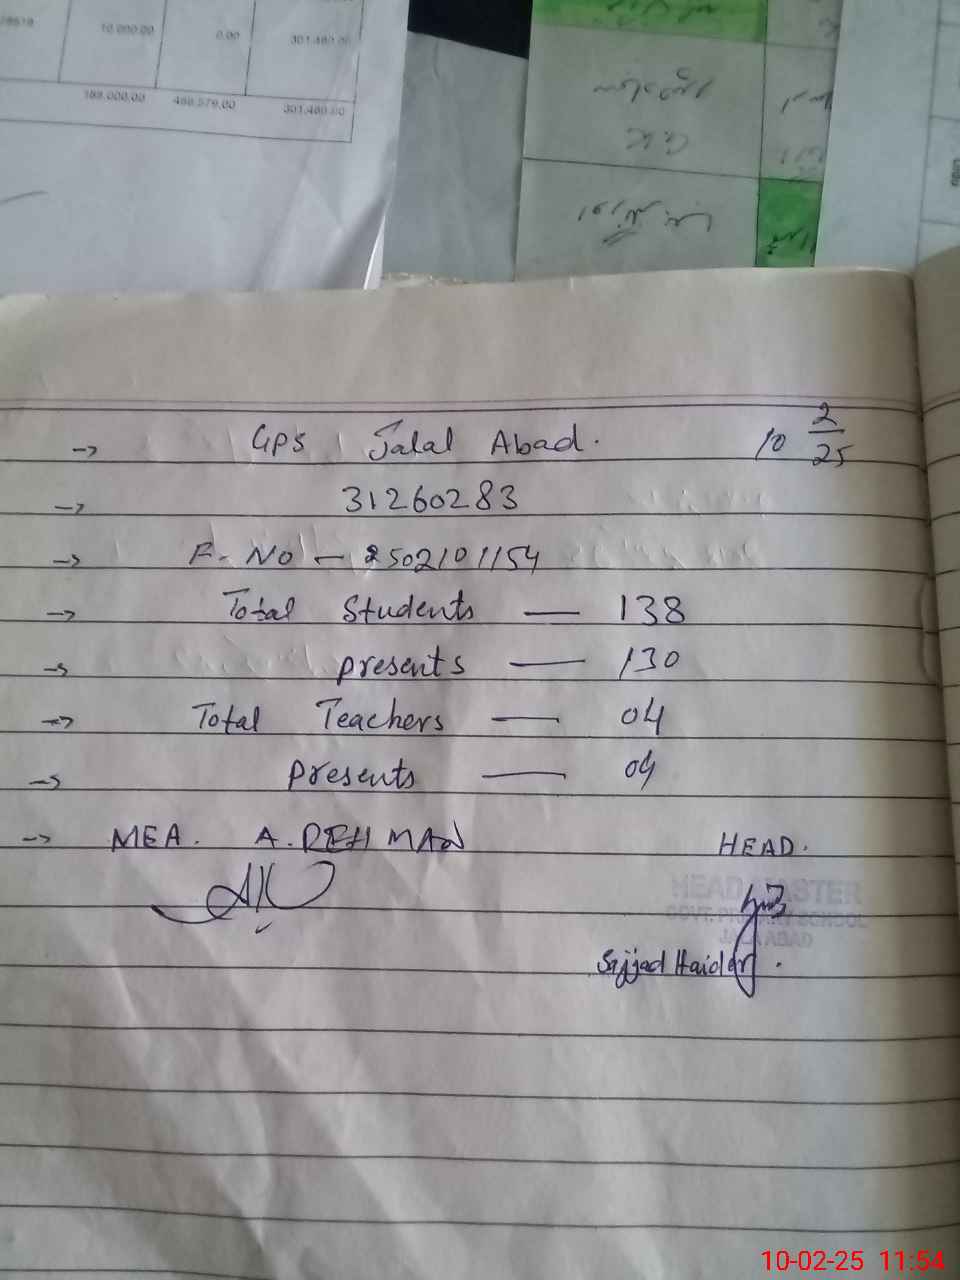 10.000.00 0.00 301.480.00
188.000.00 488.579.00 301.480.00
→ GPS Jalal Abad. 10 2/25
→ 31260283
→ F. No - 2502101154
→ Total Students — 138
→ presents — 130
→ Total Teachers — 04
→ presents — 04
→ MEA. A. REHMAN HEAD.
HEAD MASTER
GOVT. PRIMARY SCHOOL
JALALABAD
Sajjad Haider.
10-02-25 11:54